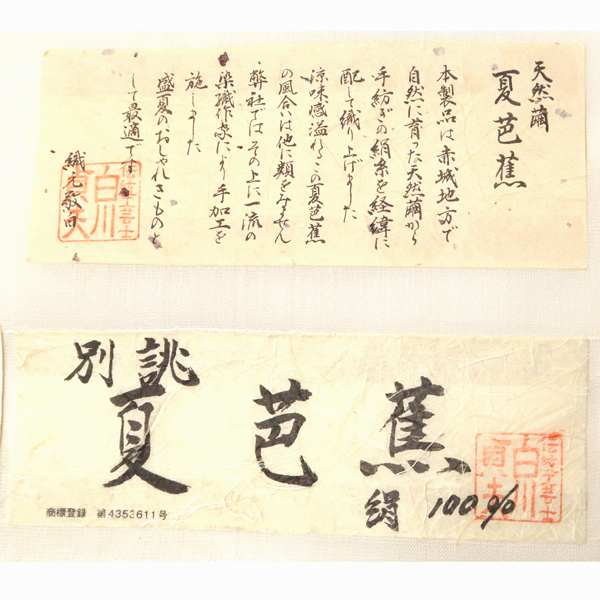 天然繭
夏芭蕉
本製品は赤城地方で
自然に育った天然繭から
手紡ぎの絹糸を経緯に
配して織り上げました
涼味感溢れるこの夏芭蕉
の風合いは他に類をみません
弊社ではその上に一流の
染織作家により手加工を
施しました
盛夏のおしゃれきものと
して最適です
織元敬白
伝統工芸士
白川
別誂
夏芭蕉
絹 100%
伝統工芸士
白川
商標登録 第4353611号